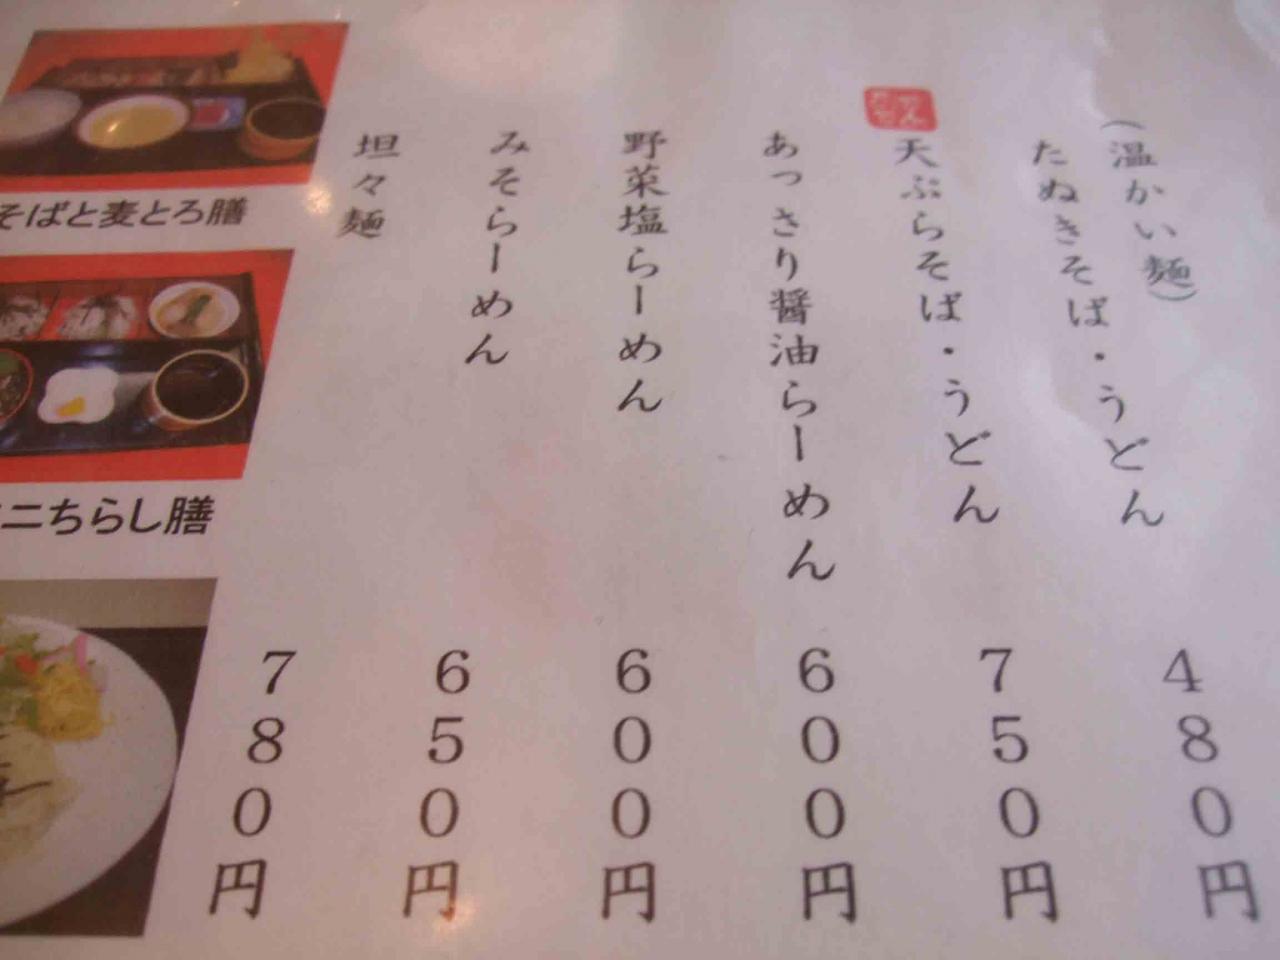 (温かい麺)
たぬきそば・うどん
480円
天ぷらそば・うどん
750円
あっさり醤油らーめん
600円
野菜塩らーめん
600円
みそらーめん
650円
坦々麺
780円
そばと麦とろ膳
ニちらし膳